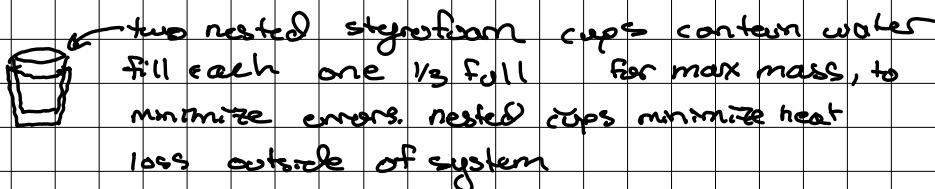 two nested styrofoam cups contain water
fill each one 1/3 full for max mass, to
minimize errors. nested cups minimize heat
loss outside of system